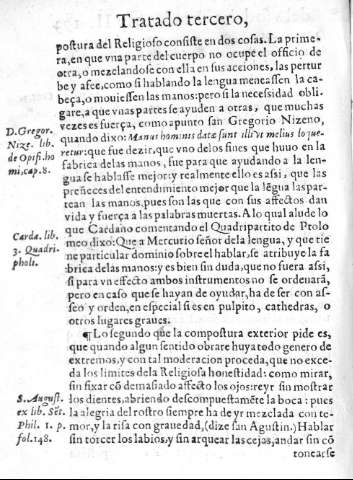 Tratado tercero,
postura del Religioso consiste en dos cosas. La prime-
ra, en que vna parte del cuerpo no ocupe el officio de
otra, o mezclandose con ella en sus acciones, las pertur
be y afee, como si hablando la lengua meneassen la ca-
beça, o mouiessen las manos: pero si la necessidad obli-
gare, a que vnas partes se ayuden a otras, que muchas
vezes es fuerça, como apunto san Gregorio Nizeno,
quando dixo: Manus hominis datæ sunt illi vt melius loque-
retur: que fue dezir, que vno de los fines que huuo en la
fabrica de las manos, fue para que ayudando a la len-
gua se hablasse mejor: y realmente ello es assi, que las
prefieces del entendimiento mejor que la lẽgua las par-
tean las manos, pues son las que con sus affectos dan
vida y fuerça a las palabras muertas. A lo qual alude lo
que Cardano comentando el Quadripartito de Ptolo
meo dixo: Que a Mercurio señor de la lengua, y que tie
ne particular dominio sobre el hablar, se atribuye la fa-
brica de las manos: y es bien sin duda, que no fuera assi,
si para vn effecto ambos instrumentos no se ordenarã,
pero en caso que se hayan de ayudar, ha de ser con as-
seo y orden, en especial si es en pulpito, cathedras, o
otros lugares graues.
¶ Lo segundo que la compostura exterior pide es,
que quando algun sentido obrare huya todo genero de
extremos, y con tal moderacion proceda, que no exce-
da los limites de la Religiosa honestidad: como mirar,
sin fixar cõ demasiado affecto los ojos: reyr sin mostrar
los dientes, abriendo descompuestamẽte la boca: pues
la alegria del rostro siempre ha de yr mezclada con te-
mor, y la risa con grauedad, (dize san Agustin.) Hablar
sin torcer los labios, y sin arquear las cejas, andar sin cõ
tonearse
D. Gregor.
Nizę. lib.
de Opifi. ho
mi, cap. 8.
Cardæ. lib.
3. Quadri-
pholi.
S. August.
ex lib. Sẽt.
Phil. 1. p.
fol. 148.